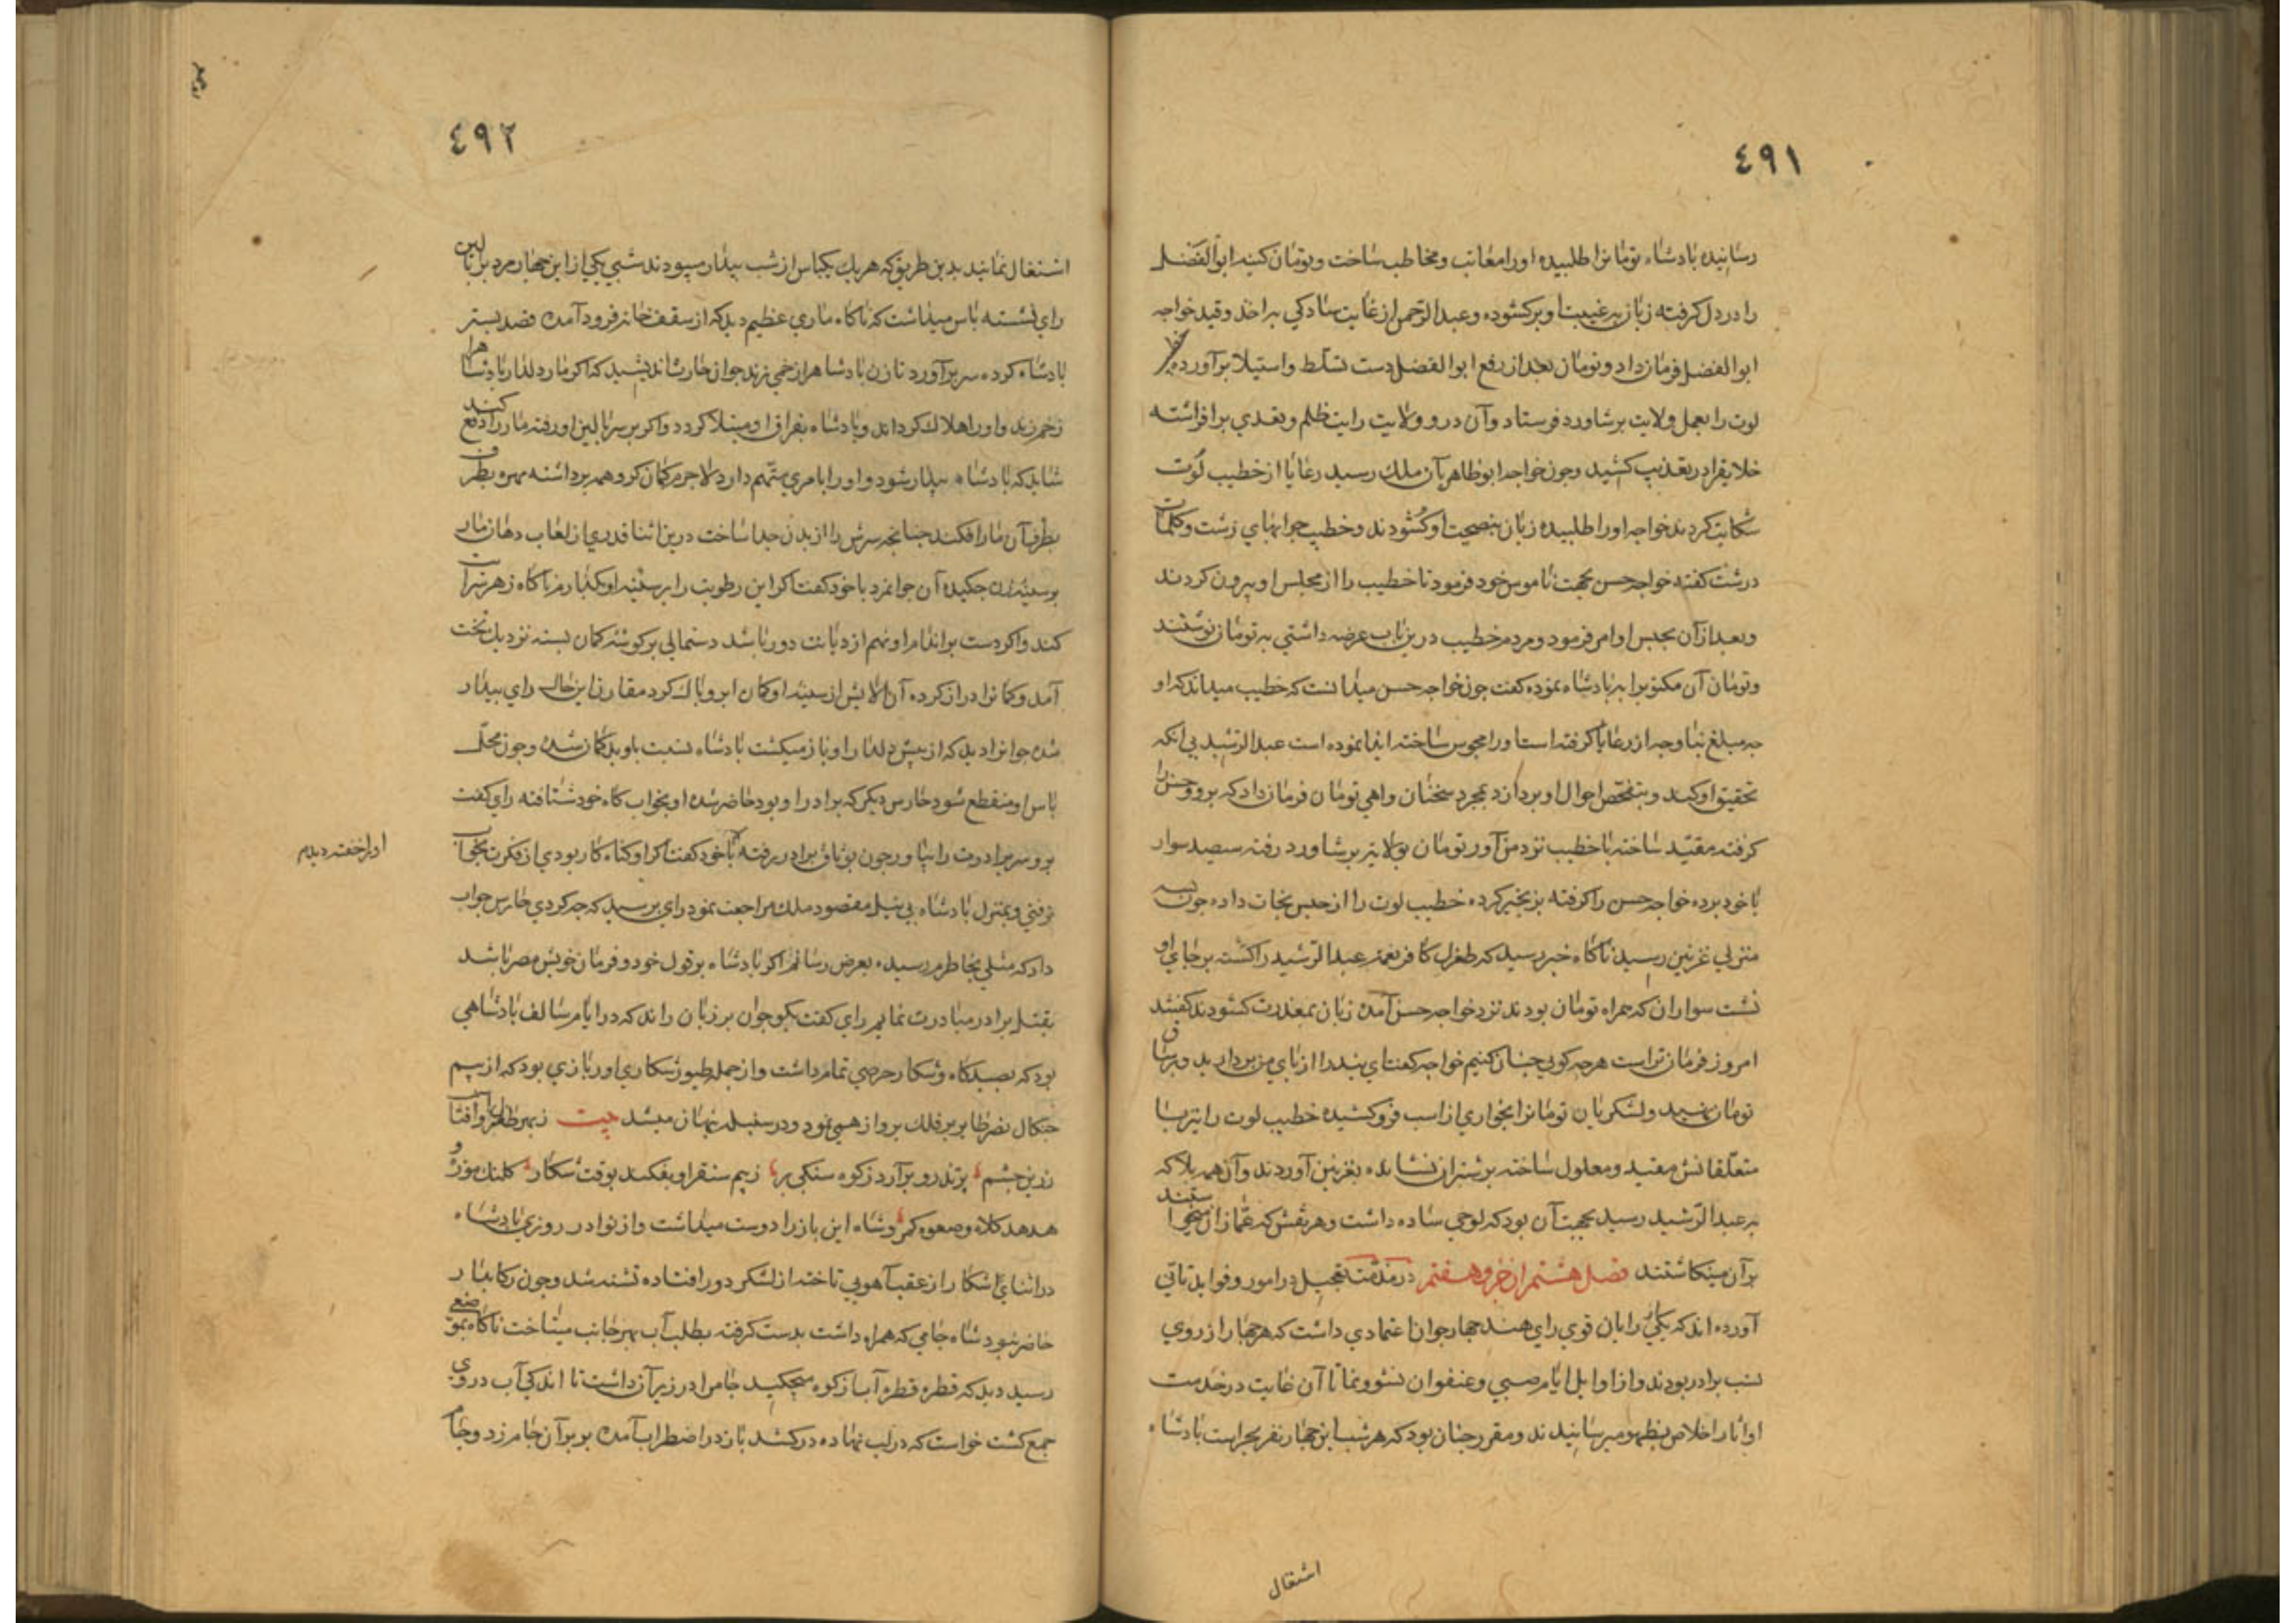 ٤٩١
رسانیده پادشاه تومانرا طلبیده اورا معاتب ومخاطب ساخت وتومان کینه ابوالفضل
را در دل کرفته زبان بغیبت او برکشوده وعبدالرحمن از غایت سادکی به اخذ وقید خواجه
ابوالفضل فرمان داد وتومان بعد از رفع ابوالفضل دست تسلط واستیلا برآورده
لوت را بعمل ولایت برشاورد فرستاد وآن در و ولایت رایت ظلم وتعدی برافراشته
خلایقرا در تعذیب کشید وچون خواجه ابوطاهر بآن ملک رسید رعایا از خطیب لوت
شکایت کردند خواجه اورا طلبیده زبان بنصیحت او کشودند وخطیب جوابهای زشت وکلمات
درشت کفته خواجه حسن بجهت ناموس خود فرمود تا خطیب را از مجلس او بیرون کردند
وبعد ازآن بحبس او امر فرمود ومردم خطیب درین باب عرضه داشتی به تومان نوشتند
وتومان آن مکتوبرا به پادشاه نموده کفت چون خواجه حسن میدانست که خطیب میداند که او
چه مبلغ بناوجه از رعایا کرفته است اورا محبوس ساخته ایذا نموده است عبدالرشید بی آنکه
تحقیق او کند وبتفحص احوال او پردازد بمجرد سخنان واهی تومان فرمان داد که برو وحسن را
کرفته مقید ساخته با خطیب نزد من آور تومان بولایت برشاورد رفته سیصد سوار
با خود برده خواجه حسن را کرفته بزنجیر کرده خطیب لوت را از حبس نجات داده چون بسه
منزلی غزنین رسید ناکاه خبر رسید که طغرل کافر نعمت عبدالرشید را کشته برجای او
نشست سواران که همراه تومان بودند نزد خواجه حسن آمده زبان بمعذرت کشودند کفتند
امروز فرمان تراست هرچه کویی چنان کنیم خواجه کفت این بند را از پای من بردارید وبرساق
تومان نهید ولشکریان تومانرا بخواری از اسب فروکشیده خطیب لوت را نیز با
متعلقانش مقید ومغلول ساخته برشتران نشانده بغزنین آوردند وآن همه بلا که
به عبدالرشید رسید بجهت آن بود که لوحی ساده داشت وهر نقش که غمازان میخواستند
برآن مینکاشتند فصل هشتم از جزو هفتم در مذمت تعجیل در امور وفواید تأنی
آورده اند که یکی از رایان قوی رای هند چهار جوان اعتمادی داشت که هر چهار از روی
نسب برادر بودند واز اوایل ایام صبی وعنفوان نشو ونما تا آن غایت در خدمت
او آثار اخلاص بظهور میرسانیدند ومقرر چنان بود که هرشب این چهار نفر بحراست پادشاه
اشتغال
٤٩٢
اشتغال نمایند بدین طریق که هریک یکپاس از شب بیدار میبودند شبی یکی از این چهار مرد بر بالین
رای نشسته پاس میداشت که ناکاه ماری عظیم دید که از سقف خانه فرود آمده قصد بستر
پادشاه کرده سر برآورد تا زن پادشاه را زخمی زند جوان حارث اندیشید که اکر مار دلدار پادشاه را
زخم زند واورا هلاک کرداند وپادشاه بفراق او مبتلا کردد واکر بر سر بالین او رفته مار را دفع کند
شاید که پادشاه بیدار شود واورا بامری متهم دارد لاجرم کمان کروهه برداشته مهره بطرف
بطرف آن مار افکند چنانچه سرش را از بدن جدا ساخت درین اثنا قدری از لعاب دهان مار
بر سینه زن چکیده آن جوانمرد با خود کفت اکر این رطوبت را بر سینه او بکذارم ناکاه زهر سرایت
کند واکر دست بر اندام او نهم از دیانت دور باشد دستمالی برکوشه کمان بسته نزدیک تخت
آمد وکمانرا دراز کرده آن آلایش از سینه او پاک کرد مقارن این حال رای بیدار
شده جوانرا دید که از پیش دلدار او باز میکشت پادشاه نسبت باو بدکمان شده وچون محل
پاس او منقطع شود حارس دیکر که برادر او بود حاضر شده او بخواب کاه خود شتافته رای کفت
برو سر برادرت را بیاور چون بوثاق برادر رفته اورا خفته دیدم با خود کفت اکر او کناه کار بودی از فکرت بخواب
نرفتی وبمنزل پادشاه بی نیل مقصود ملک مراجعت نمود رای پرسید که چه کردی حارس جواب
داد که مثلی بخاطرم رسیده بعرض رسانم اکر پادشاه برقول خود وفرمان خویش مصر باشد
بقتل برادر مبادرت نمایم رای کفت بکو جوان برزبان راند که در ایام سالف پادشاهی
بود که بصیدکاه وشکار حرصی تمام داشت واز جمله طیور شکاری اورا بازی بود که از بیم
چنکال نسر طایر برفلک پرواز همی نمود ودر سنبله نهان میشد بیت
زرین چشم پرتذرو برآرد زکوه سنکی بر زبیم سنقر او بفکند بوقت شکار کلنک موزه و
هدهد کلاه وصعوه کمر وشاه این باز را دوست میداشت واز نوادر روزی پادشاه
در اثنای شکار از عقب آهویی تاخته از لشکر دور افتاده تشنه شد وچون رکابدار
حاضر نبود شاه جامی که همراه داشت بدست کرفته بطلب آب بهر جانب میتاخت ناکاه بموضعی
رسید دید که قطره قطره آب از کوه میچکید جام را در زیر آن داشت تا اندکی آب در وی
جمع کشت خواست که درلب نهاده درکشد باز در اضطراب آمده پر بر آن جام زد وجام
اورا خفته دیدم